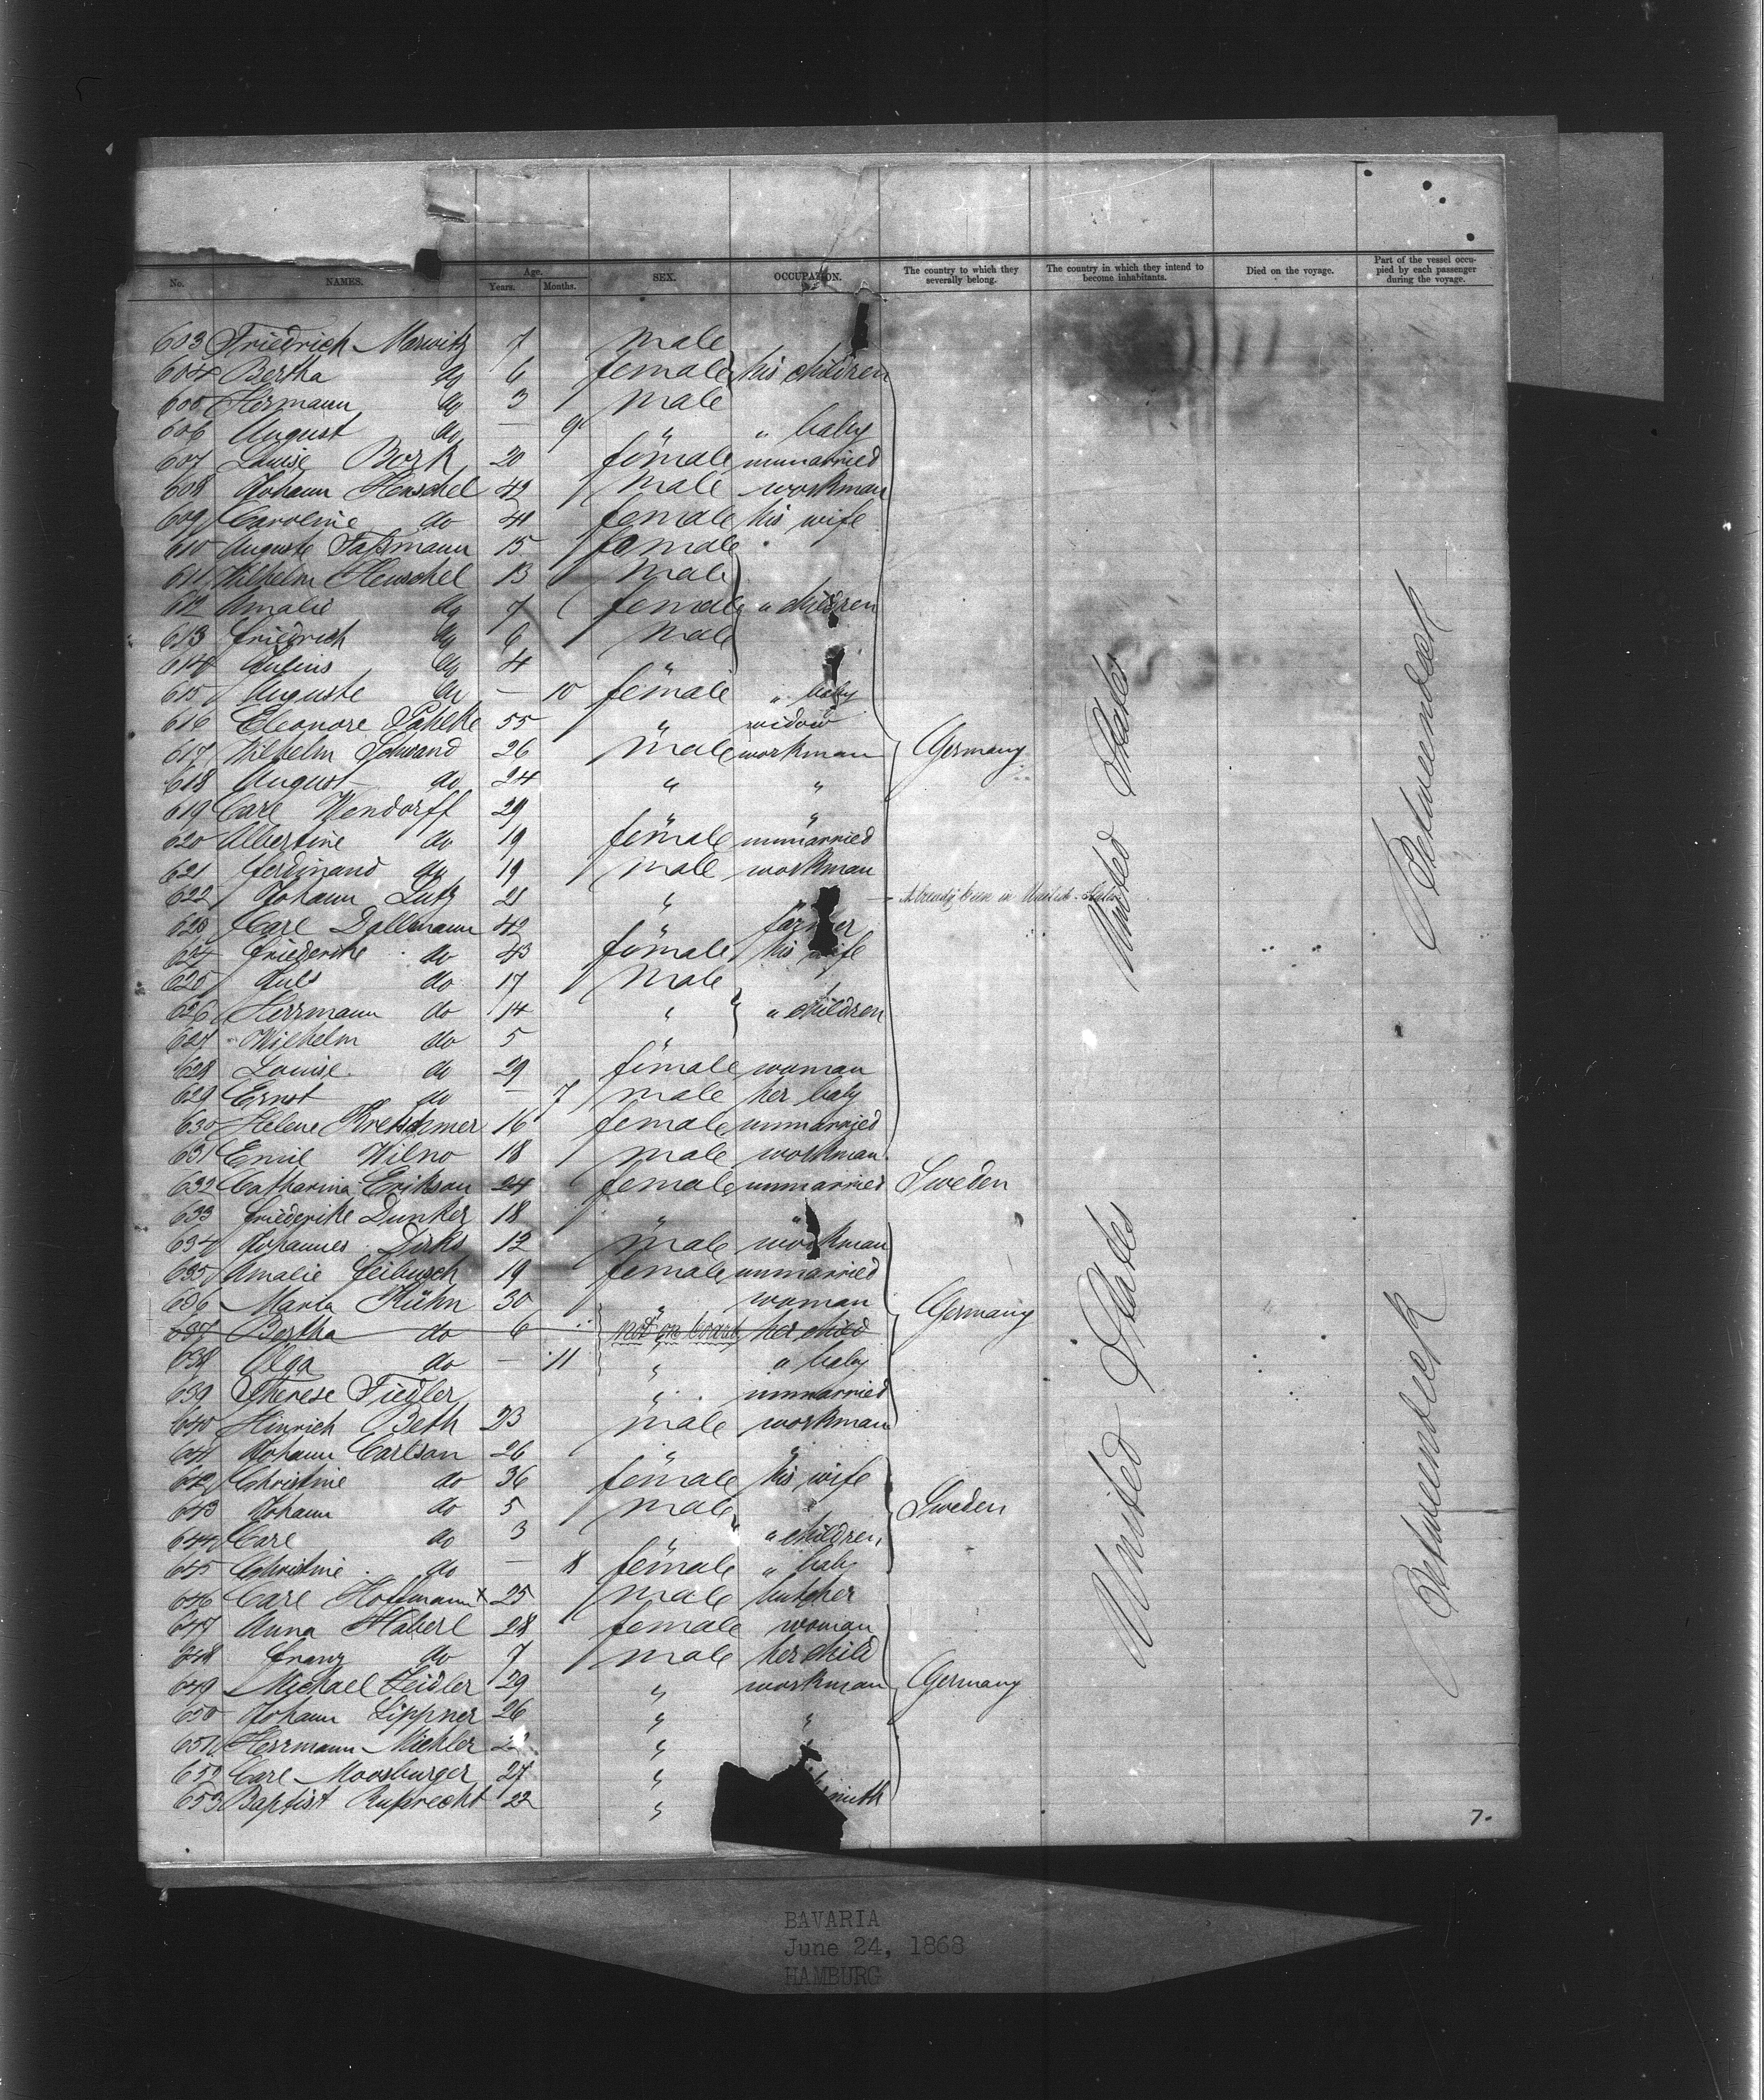 No. NAMES. Age. Years. Months. SEX. OCCUPATION. The country to which they severally belong. The country in which they intend to become inhabitants. Died on the voyage. Part of the vessel occupied by each passenger during the voyage.
603 Friedrich Marwitz 7 male
604 Bertha do 6 female his children
605 Hermann do 3 male
606 August do — 9 " " baby
607 Louise Bork 20 female unmarried
608 Johann Henschel 42 male workman
609 Caroline do 41 female his wife
610 Auguste Faßmann 15 female
611 Wilhelm Henschel 13 male
612 Amalie do 7 female " children
613 Friedrich do 6 male
614 Julius do 4 "
615 Auguste do — 10 female " baby
616 Eleonore Pahlke 55 " widow
617 Wilhelm Schwand 26 male workman Germany
618 August do 24 " "
619 Carl Wendorff 29 " "
620 Albertine do 19 female unmarried
621 Ferdinand do 19 male workman
622 Johann Lutz 21 " " Already been in United States
623 Carl Dallmann 42 " farmer
624 Friederike do 43 female his wife
625 Juls do 17 male
626 Herrmann do 14 " " children
627 Wilhelm do 5 "
628 Louise do 29 female woman
629 Ernst do — 7 male her baby
630 Helene Kretschmer 16 female unmarried
631 Emil Wilno 18 male workman
632 Catharina Erikson 24 female unmarried Sweden
633 Friederike Dunker 18 " "
634 Johannes Dirks 12 male workman
635 Amalie Leibusch 19 female unmarried
636 Maria Kühn 30 " woman Germany
637 Bertha do 6 not on board her child
638 Olga do — 11 " " baby
639 Therese Fiedler " unmarried
640 Hinrich Beth 23 male workman
641 Johann Carlson 26 " "
642 Christine do 36 female his wife
643 Johann do 5 male Sweden
644 Carl do 3 " " children
645 Christine do — 8 female " baby
646 Carl Hoffmann x 25 male butcher
647 Anna Haberl 28 female woman
648 Franz do 7 male her child
649 Michael Zeidler 29 " workman Germany
650 Johann Lippner 26 " "
651 Herrmann Michler "
652 Carl Moosburger 27 "
653 Baptist Ruprecht 22 "
United States
United States
Betweendeck
Betweendeck
7.
BAVARIA
June 24, 1868
HAMBURG